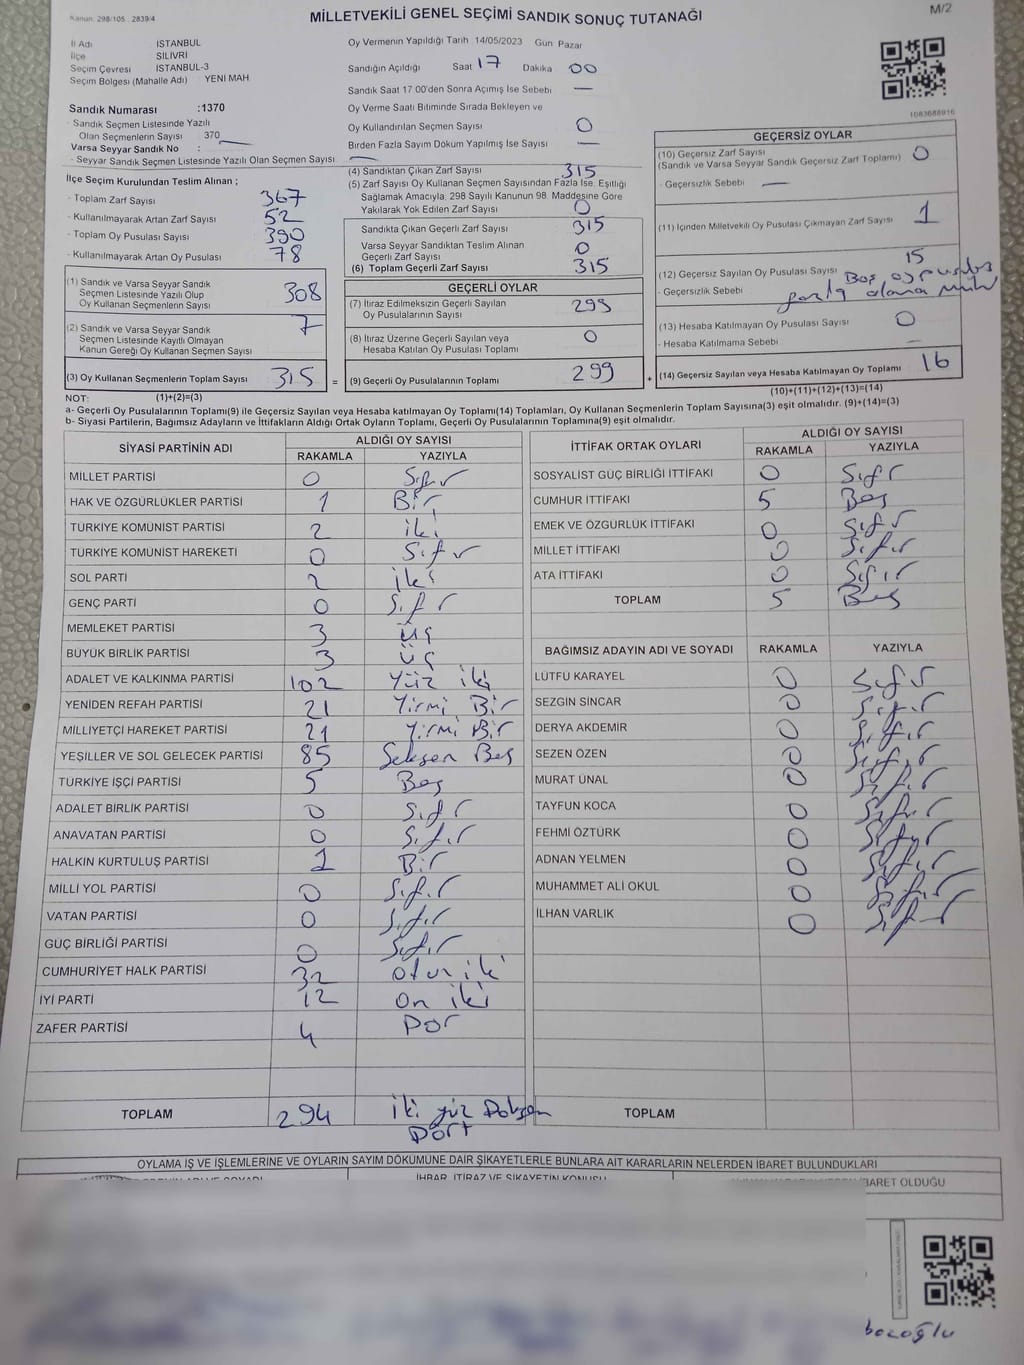 Kanun. 298/105 . 2839/4
MİLLETVEKİLİ GENEL SEÇİMİ SANDIK SONUÇ TUTANAĞI
M/2
İl Adı İSTANBUL
İlçe SİLİVRİ
Seçim Çevresi İSTANBUL-3
Seçim Bölgesi (Mahalle Adı) YENİ MAH
Sandık Numarası :1370
- Sandık Seçmen Listesinde Yazılı
Olan Seçmenlerin Sayısı 370
Varsa Seyyar Sandık No :
- Seyyar Sandık Seçmen Listesinde Yazılı Olan Seçmen Sayısı —
Oy Vermenin Yapıldığı Tarih 14/05/2023 Gün Pazar
Sandığın Açıldığı Saat 17 Dakika 00
Sandık Saat 17.00'den Sonra Açımış İse Sebebi —
Oy Verme Saati Bitiminde Sırada Bekleyen ve
Oy Kullandırılan Seçmen Sayısı 0
Birden Fazla Sayım Döküm Yapılmış İse Sayısı —
1083688916
İlçe Seçim Kurulundan Teslim Alınan ;
- Toplam Zarf Sayısı 367
- Kullanılmayarak Artan Zarf Sayısı 52
- Toplam Oy Pusulası Sayısı 390
- Kullanılmayarak Artan Oy Pusulası 78
(1) Sandık ve Varsa Seyyar Sandık
Seçmen Listesinde Yazılı Olup
Oy Kullanan Seçmenlerin Sayısı 308
(2) Sandık ve Varsa Seyyar Sandık
Seçmen Listesinde Kayıtlı Olmayan
Kanun Gereği Oy Kullanan Seçmen Sayısı 7
(3) Oy Kullanan Seçmenlerin Toplam Sayısı 315 =
(1)+(2)=(3)
(4) Sandıktan Çıkan Zarf Sayısı 315
(5) Zarf Sayısı Oy Kullanan Seçmen Sayısından Fazla İse, Eşitliği
Sağlamak Amacıyla, 298 Sayılı Kanunun 98. Maddesine Göre
Yakılarak Yok Edilen Zarf Sayısı 0
Sandıkta Çıkan Geçerli Zarf Sayısı 315
Varsa Seyyar Sandıktan Teslim Alınan
Geçerli Zarf Sayısı 0
(6) Toplam Geçerli Zarf Sayısı 315
GEÇERLİ OYLAR
(7) İtiraz Edilmeksizin Geçerli Sayılan
Oy Pusulalarının Sayısı 299
(8) İtiraz Üzerine Geçerli Sayılan veya
Hesaba Katılan Oy Pusulası Toplamı 0
(9) Geçerli Oy Pusulalarının Toplamı 299 +
GEÇERSİZ OYLAR
(10) Geçersiz Zarf Sayısı
(Sandık ve Varsa Seyyar Sandık Geçersiz Zarf Toplamı) 0
- Geçersizlik Sebebi —
(11) İçinden Milletvekili Oy Pusulası Çıkmayan Zarf Sayısı 1
(12) Geçersiz Sayılan Oy Pusulası Sayısı 15
- Geçersizlik Sebebi Boş oy pusulası
fazla
(13) Hesaba Katılmayan Oy Pusulası Sayısı 0
- Hesaba Katılmama Sebebi —
(14) Geçersiz Sayılan veya Hesaba Katılmayan Oy Toplamı 16
(10)+(11)+(12)+(13)=(14)
NOT:
a- Geçerli Oy Pusulalarının Toplamı(9) ile Geçersiz Sayılan veya Hesaba katılmayan Oy Toplamı(14) Toplamları, Oy Kullanan Seçmenlerin Toplam Sayısına(3) eşit olmalıdır. (9)+(14)=(3)
b- Siyasi Partilerin, Bağımsız Adayların ve İttifakların Aldığı Ortak Oyların Toplamı, Geçerli Oy Pusulalarının Toplamına(9) eşit olmalıdır.
SİYASİ PARTİNİN ADI ALDIĞI OY SAYISI
RAKAMLA YAZIYLA
MİLLET PARTİSİ 0 Sıfır
HAK VE ÖZGÜRLÜKLER PARTİSİ 1 Bir
TÜRKİYE KOMÜNİST PARTİSİ 2 iki
TÜRKİYE KOMÜNİST HAREKETİ 0 Sıfır
SOL PARTİ 2 iki
GENÇ PARTİ 0 Sıfır
MEMLEKET PARTİSİ 3 üç
BÜYÜK BİRLİK PARTİSİ 3 üç
ADALET VE KALKINMA PARTİSİ 102 Yüz iki
YENİDEN REFAH PARTİSİ 21 Yirmi Bir
MİLLİYETÇİ HAREKET PARTİSİ 21 Yirmi Bir
YEŞİLLER VE SOL GELECEK PARTİSİ 85 Seksen Beş
TÜRKİYE İŞÇİ PARTİSİ 5 Beş
ADALET BİRLİK PARTİSİ 0 Sıfır
ANAVATAN PARTİSİ 0 Sıfır
HALKIN KURTULUŞ PARTİSİ 1 Bir
MİLLİ YOL PARTİSİ 0 Sıfır
VATAN PARTİSİ 0 Sıfır
GÜÇ BİRLİĞİ PARTİSİ 0 Sıfır
CUMHURİYET HALK PARTİSİ 32 Otuz iki
İYİ PARTİ 12 On iki
ZAFER PARTİSİ 4 Dör
TOPLAM 294 iki yüz Doksan
Dört
İTTİFAK ORTAK OYLARI ALDIĞI OY SAYISI
RAKAMLA YAZIYLA
SOSYALİST GÜÇ BİRLİĞİ İTTİFAKI 0 Sıfır
CUMHUR İTTİFAKI 5 Beş
EMEK VE ÖZGÜRLÜK İTTİFAKI 0 Sıfır
MİLLET İTTİFAKI 0 Sıfır
ATA İTTİFAKI 0 Sıfır
TOPLAM 5 Beş
BAĞIMSIZ ADAYIN ADI VE SOYADI RAKAMLA YAZIYLA
LÜTFÜ KARAYEL 0 Sıfır
SEZGİN SİNCAR 0 Sıfır
DERYA AKDEMİR 0 Sıfır
SEZEN ÖZEN 0 Sıfır
MURAT ÜNAL 0 Sıfır
TAYFUN KOCA 0 Sıfır
FEHMİ ÖZTÜRK 0 Sıfır
ADNAN YELMEN 0 Sıfır
MUHAMMET ALİ OKUL 0 Sıfır
İLHAN VARLIK 0 Sıfır
TOPLAM
OYLAMA İŞ VE İŞLEMLERİNE VE OYLARIN SAYIM DÖKÜMÜNE DAİR ŞİKAYETLERLE BUNLARA AİT KARARLARIN NELERDEN İBARET BULUNDUKLARI
İHBAR, İTİRAZ VE ŞİKAYETİN KONUSU
İBARET OLDUĞU
bozoğlu